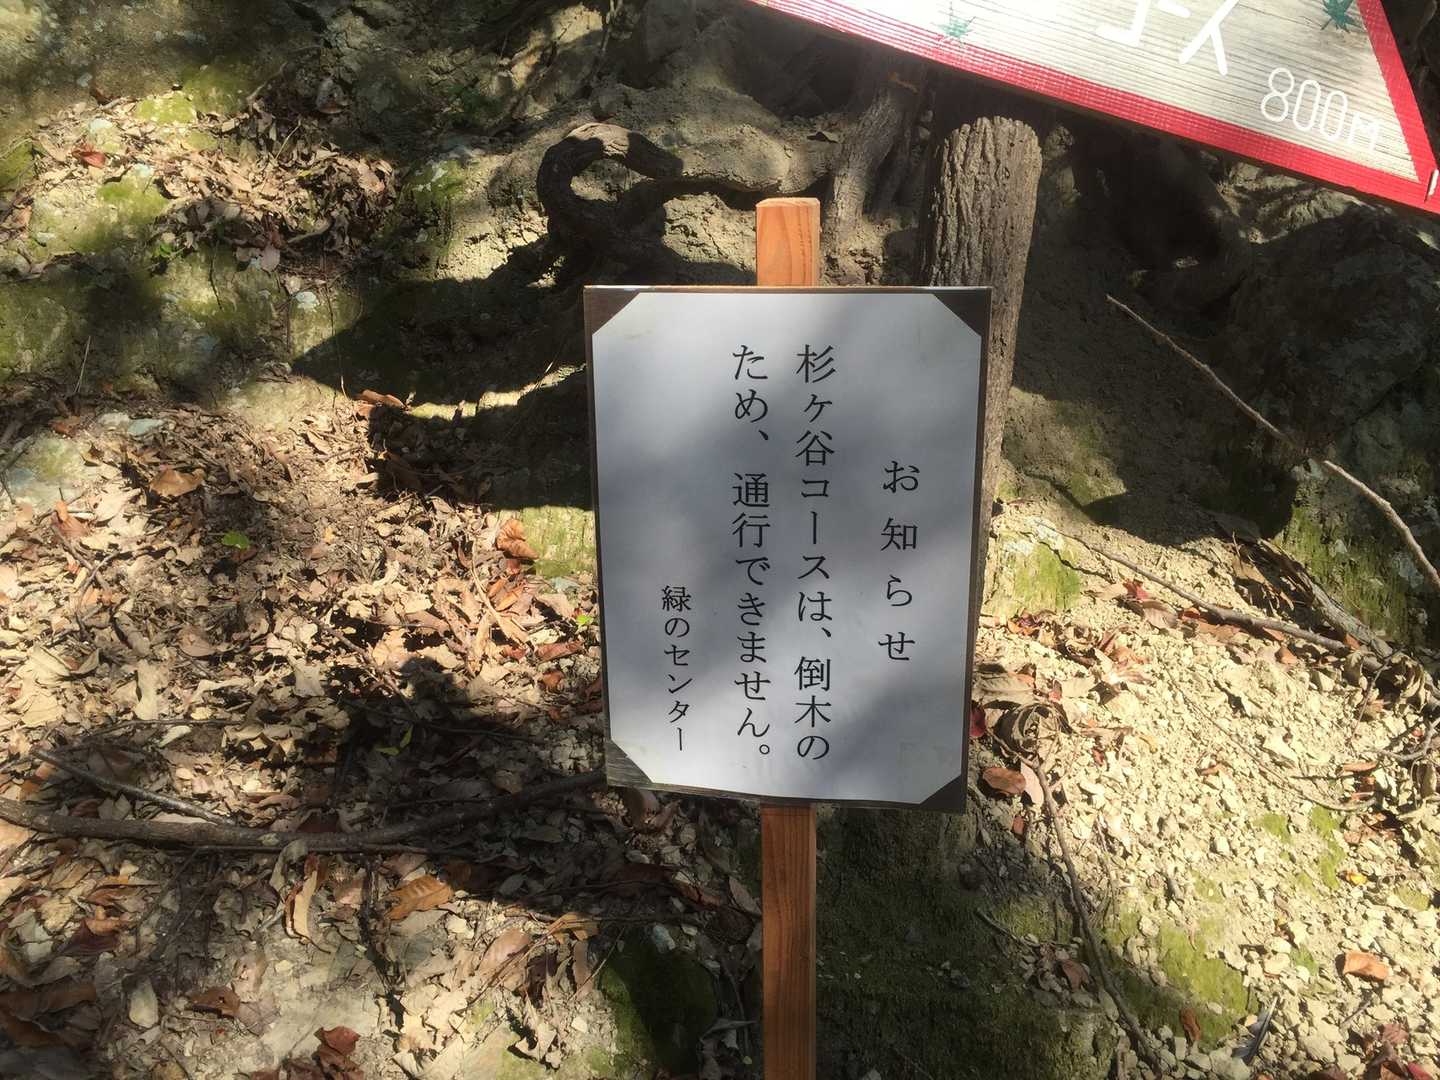 お知らせ
杉ヶ谷コースは、倒木の
ため、通行できません。
緑のセンター
コース
800M